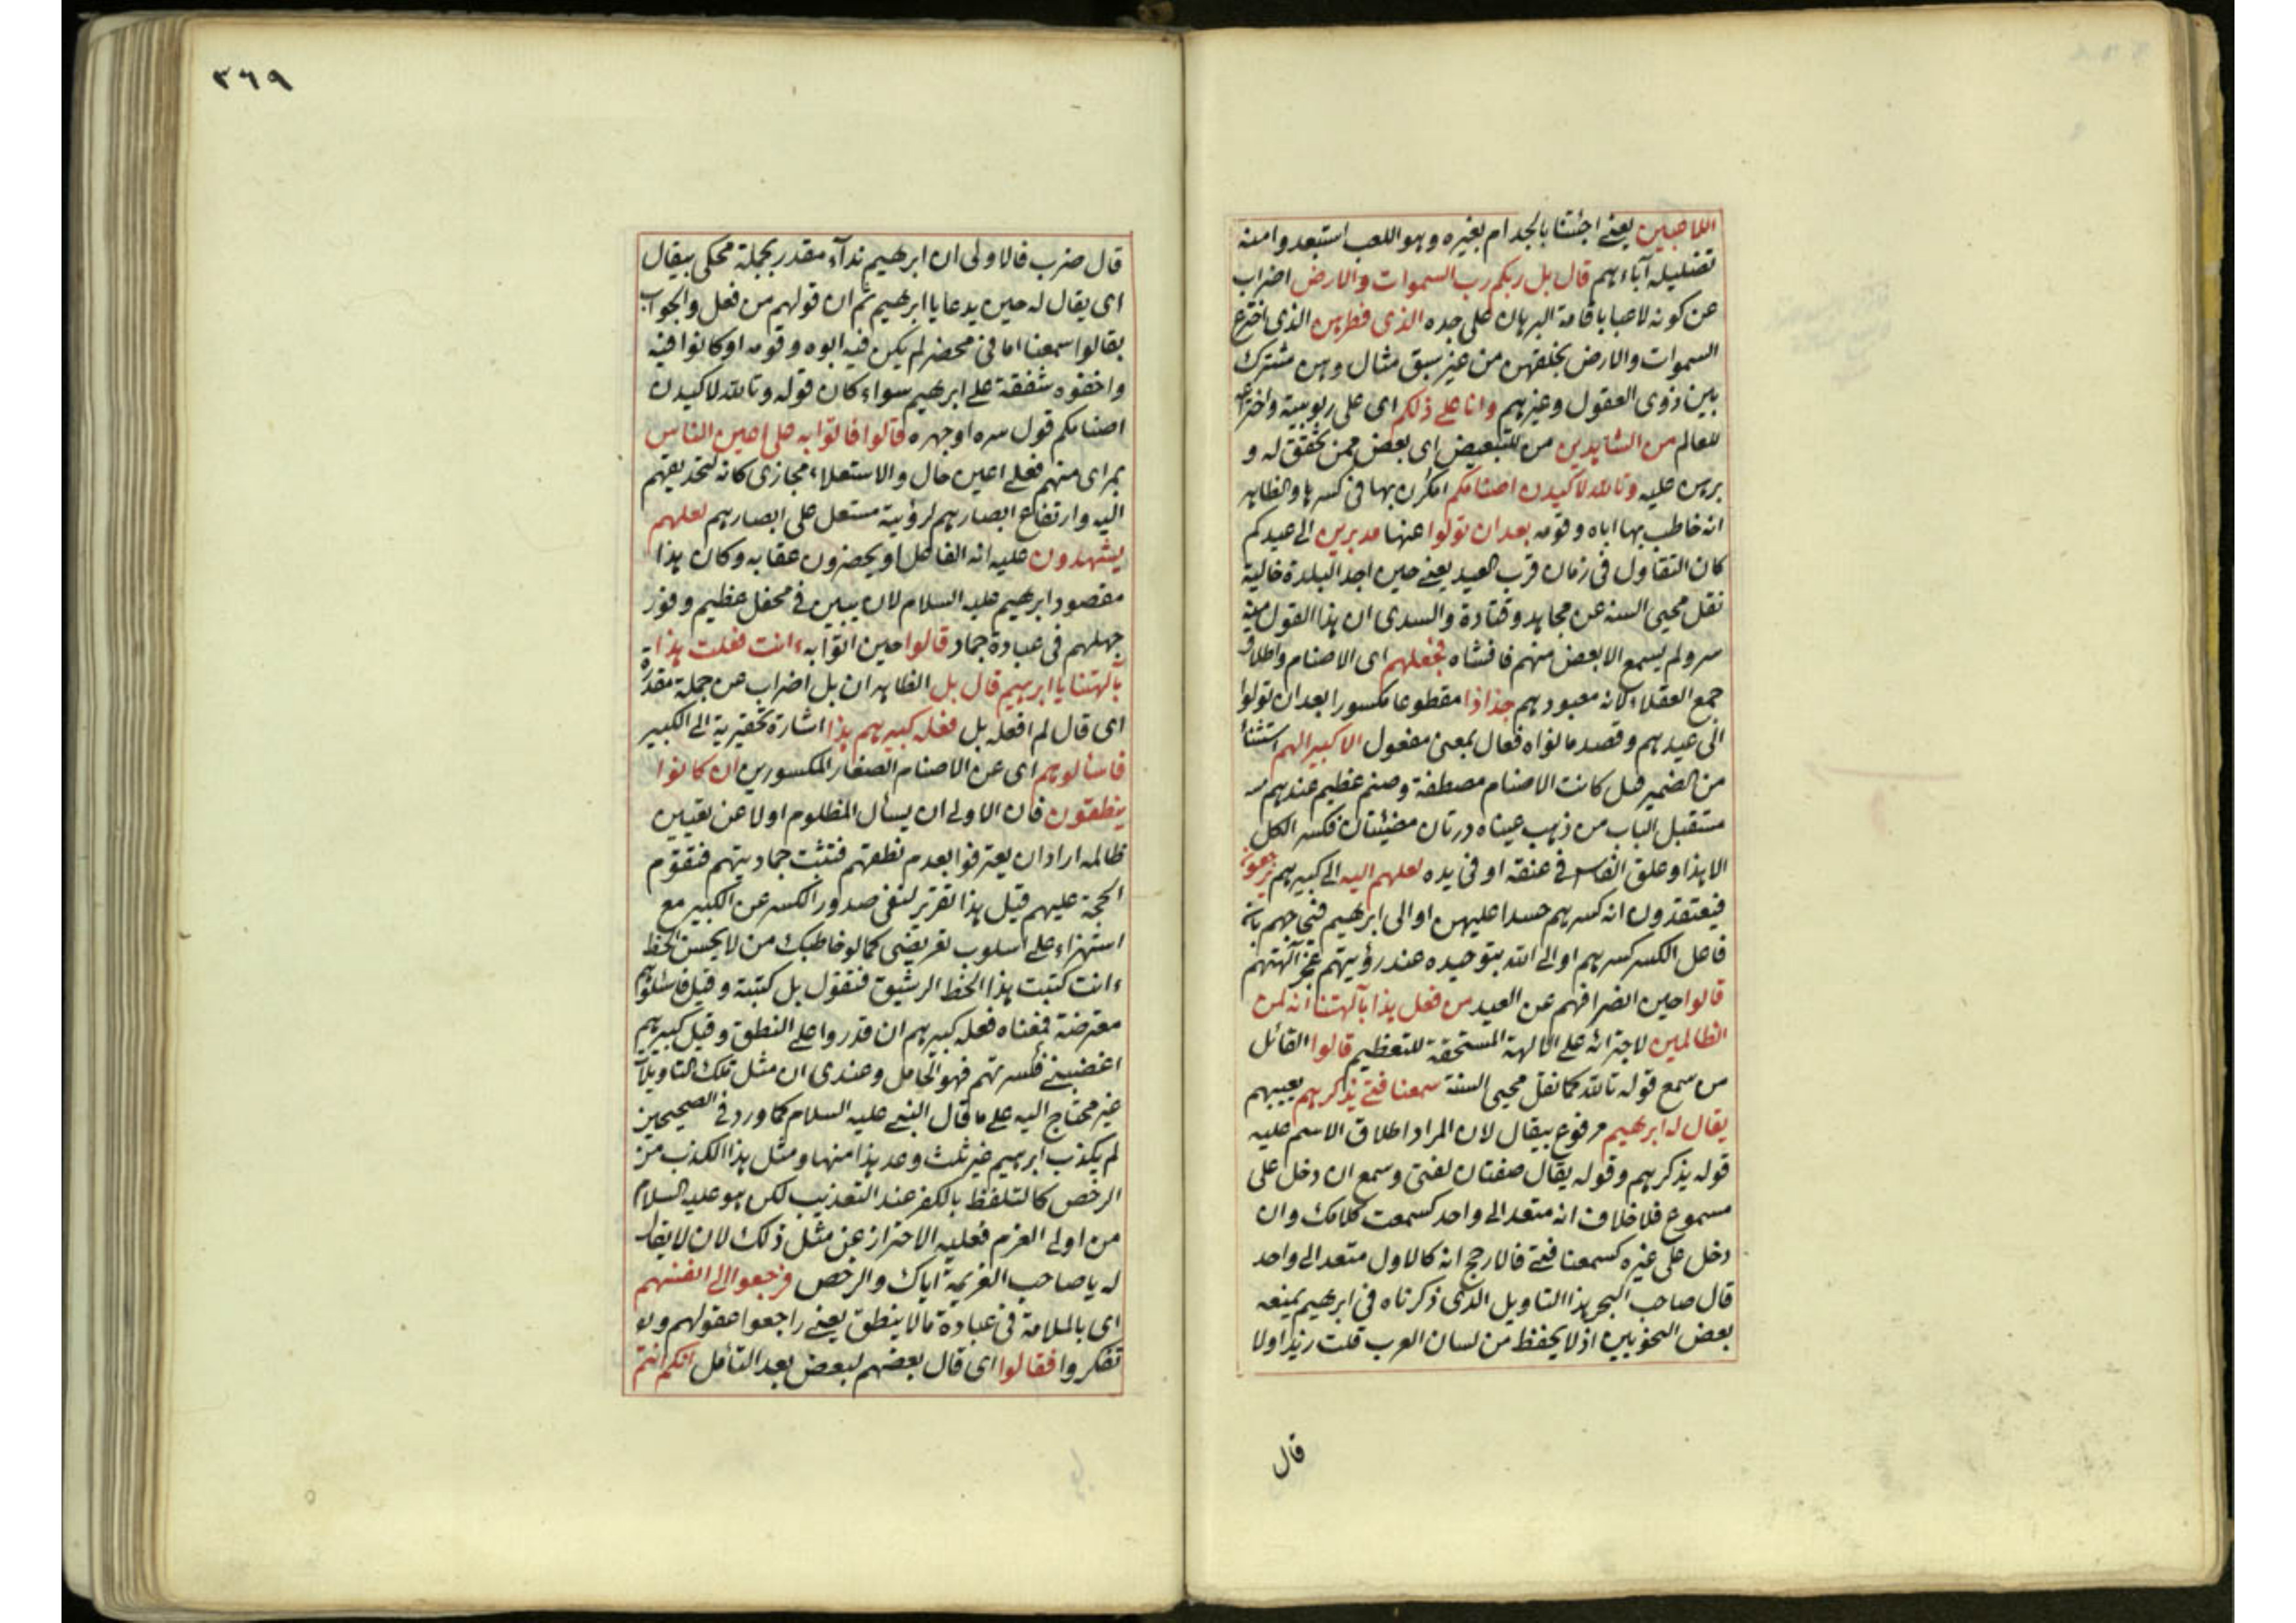 اللاعبين يعنے اجئتنا بالجد ام بغيره وهو اللعب استبعدوا منه
تضليله آباءهم قال بل ربكم رب السموات والارض اضراب
عن كونه لاعبا باقامة البرهان على جده الذى فطرهن الذى اخترع
السموات والارض بخلقهن من غير سبق مثال وهن مشترك
بين ذوى العقول وغيرهم وانا على ذلكم اى على ربوبيية واختراعه
للعالم من الشاهدين من للتبعيض اى بعض ممن تحقق له و
برهن عليه وتالله لاكيدن اصنامكم امكرن بها فى كسرها والظاهر
انه خاطب بها اباه وقومه بعد ان تولوا عنها مدبرين الى عيدكم
كان التقاول فى زمان قرب العيد يعنے حين اجد البلدة خالية
نقل محيى السنه عن مجاهد وقتادة والسدى ان هذا القول منه
سر ولم يسمع الا بعض منهم فافشاه فجعلهم اى الاصنام واطلاق
جمع العقلاء لانه معبودهم جذاذا مقطوعا مكسورا بعد ان تولوا
الى عيدهم وقصد ما نواه فعال بمعنى مفعول الا كبيرا لهم استثناء
من الضمير قيل كانت الاصنام مصطفة وصنم عظيم عندهم
مستقبل الباب من ذهب عيناه درتان مضيئتان فكسر الكل
الا هذا وعلق الفاس فى عنقه او فى يده لعلهم اليه الى كبيرهم يرجعون
فيعتقدون انه كسرهم حسدا عليهن او الى ابرهيم فيحاجهم بانه
فاعل الكسر كسرهم او الى الله بتوحيده عند رؤيتهم عجز آلهتهم
قالوا حين انصرافهم عن العيد من فعل هذا بآلهتنا انه لمن
الظالمين لاجترائه على الآلهة المستحقة للتعظيم قالوا القائل
من سمع قوله تالله كما نقل محيى السنة سمعنا فتى يذكرهم يعيبهم
يقال له ابرهيم مرفوع بيقال لان المراد اطلاق الاسم عليه
قوله يذكرهم وقوله يقال صفتان لفتى وسمع ان دخل على
مسموع فلا خلاف انه متعد الى واحد كسمعت كلامك وان
دخل على غيره كسمعنا فتى فالارجح انه كالاول متعد الى واحد
قال صاحب البحر هذا التاويل الذى ذكرناه فى ابرهيم يمنعه
بعض النحويين اذ لا يحفظ من لسان العرب قلت زيدا ولا
قال
٣٦٩
قال ضرب فالاولى ان ابرهيم نداء مقدر بجملة محكى بيقال
اى يقال له حين يدعا يا ابرهيم ثم ان قولهم من فعل والجواب
بقالوا سمعنا اما فى محضر لم يكن فيه ابوه وقومه او كانوا فيه
واخفوه شفقة على ابرهيم سواء كان قوله وتالله لاكيدن
اصنامكم قول سره او جهره قالوا فاتوا به على اعين الناس
بمراى منهم فعلى اعين حال والاستعلاء مجازى كانه لتحديقهم
اليه وارتفاع ابصارهم لرؤيية مستعل على ابصارهم لعلهم
يشهدون عليه انه الفاعل او يحضرون عقابه وكان هذا
مقصود ابرهيم عليه السلام لان يبين فى محفل عظيم وفور
جهلهم فى عبادة جماد قالوا حين اتوا به ءانت فعلت هذا
بآلهتنا يا ابرهيم قال بل الظاهر ان بل اضراب عن جملة مقدرة
اى قال لم افعله بل فعله كبيرهم هذا اشارة تحقيرية الى الكبير
فاسألوهم اى عن الاصنام الصغار المكسورين ان كانوا
ينطقون فان الاولى ان يسأل المظلوم اولا عن تعيين
ظالمه اراد ان يعترفوا بعدم نطقهم فتثبت جماديتهم فتقوم
الحجة عليهم قيل هذا تقرير لنفى صدور الكسر عن الكبير مع
استهزاء على اسلوب تعريضى كما لو خاطبك من لا يحسن الخط
ءانت كتبت هذا الخط الرشيق فتقول بل كتبته وقيل فاسئلوهم
معترضة فمعناه فعله كبيرهم ان قدروا على النطق وقيل كبيرهم
اغضبنى فكسرتهم فهو الحامل وعندى ان مثل تلك التاويلات
غير محتاج اليه على ما قال النبى عليه السلام كما ورد فى الصحيحين
لم يكذب ابرهيم غير ثلث وعد هذا منها ومثل هذا الكذب من
الرخص كالتلفظ بالكفر عند التعذيب لكن هو عليه السلام
من اولى العزم فعليه الاحتراز عن مثل ذلك لان لا يقال
له يا صاحب العزيمة اياك والرخص فرجعوا الى انفسهم
اى بالملامة فى عبادة مالا ينطق يعنے راجعوا عقولهم و
تفكروا فقالوا اى قال بعضهم لبعض بعد التأمل انكم انتم